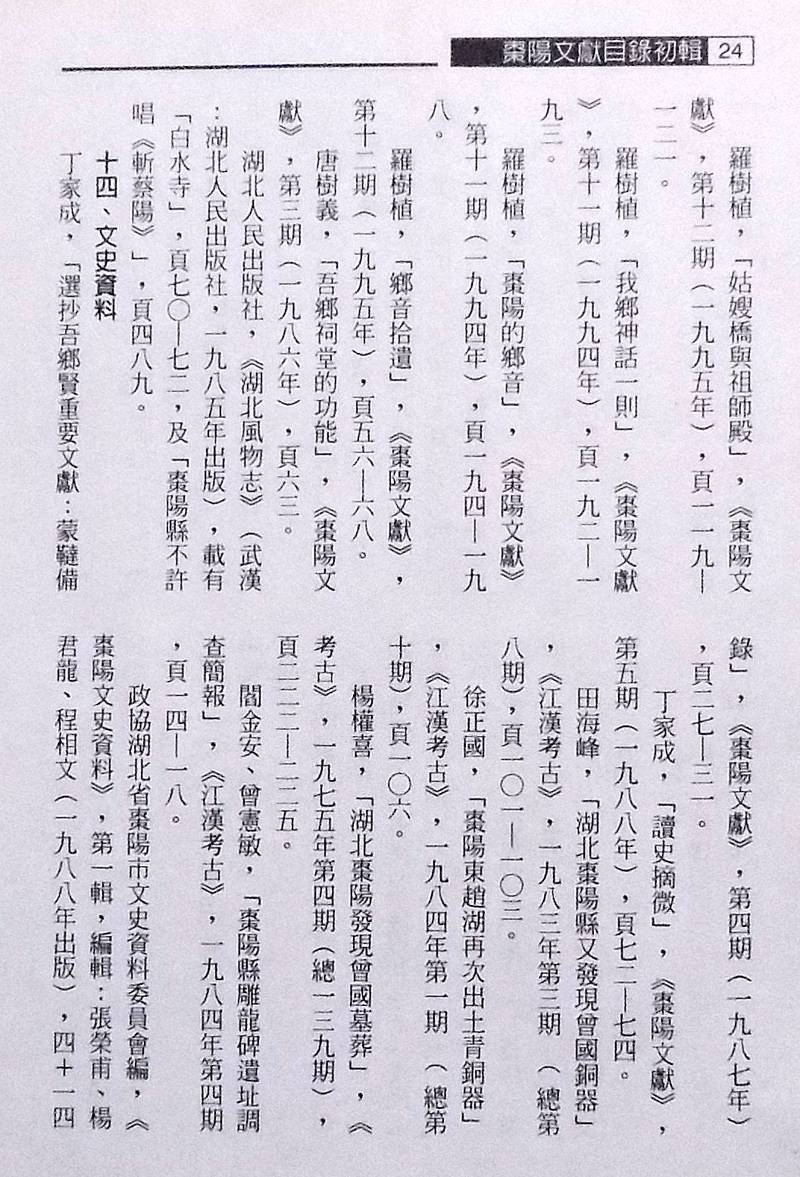 棗陽文獻目錄初輯 24
羅樹植，「姑嫂橋與祖師殿」，《棗陽文
獻》，第十二期（一九九五年），頁一一九—
一二一。
羅樹植，「我鄉神話一則」，《棗陽文獻
》，第十一期（一九九四年），頁一九二—一
九三。
羅樹植，「棗陽的鄉音」，《棗陽文獻》
，第十一期（一九九四年），頁一九四—一九
八。
羅樹植，「鄉音拾遺」，《棗陽文獻》，
第十二期（一九九五年），頁五六—六八。
唐樹義，「吾鄉祠堂的功能」，《棗陽文
獻》，第三期（一九八六年），頁六三。
湖北人民出版社，《湖北風物志》（武漢
：湖北人民出版社，一九八五年出版），載有
「白水寺」，頁七〇—七二，及「棗陽縣不許
唱《斬蔡陽》」，頁四八九。
十四、文史資料
丁家成，「選抄吾鄉賢重要文獻：蒙韃備
錄」，《棗陽文獻》，第四期（一九八七年）
，頁二七—三一。
丁家成，「讀史摘微」，《棗陽文獻》，
第五期（一九八八年），頁七二—七四。
田海峰，「湖北棗陽縣又發現曾國銅器」
，《江漢考古》，一九八三年第三期（總第
八期），頁一〇一—一〇三。
徐正國，「棗陽東趙湖再次出土青銅器」
，《江漢考古》，一九八四年第一期（總第
十期），頁一〇六。
楊權喜，「湖北棗陽發現曾國墓葬」，《
考古》，一九七五年第四期（總一三九期），
頁二二二—二二五。
閻金安、曾憲敏，「棗陽縣雕龍碑遺址調
查簡報」，《江漢考古》，一九八四年第四期
，頁一四—一八。
政協湖北省棗陽市文史資料委員會編，《
棗陽文史資料》，第一輯，編輯：張榮甫、楊
君龍、程相文（一九八八年出版），四＋一四